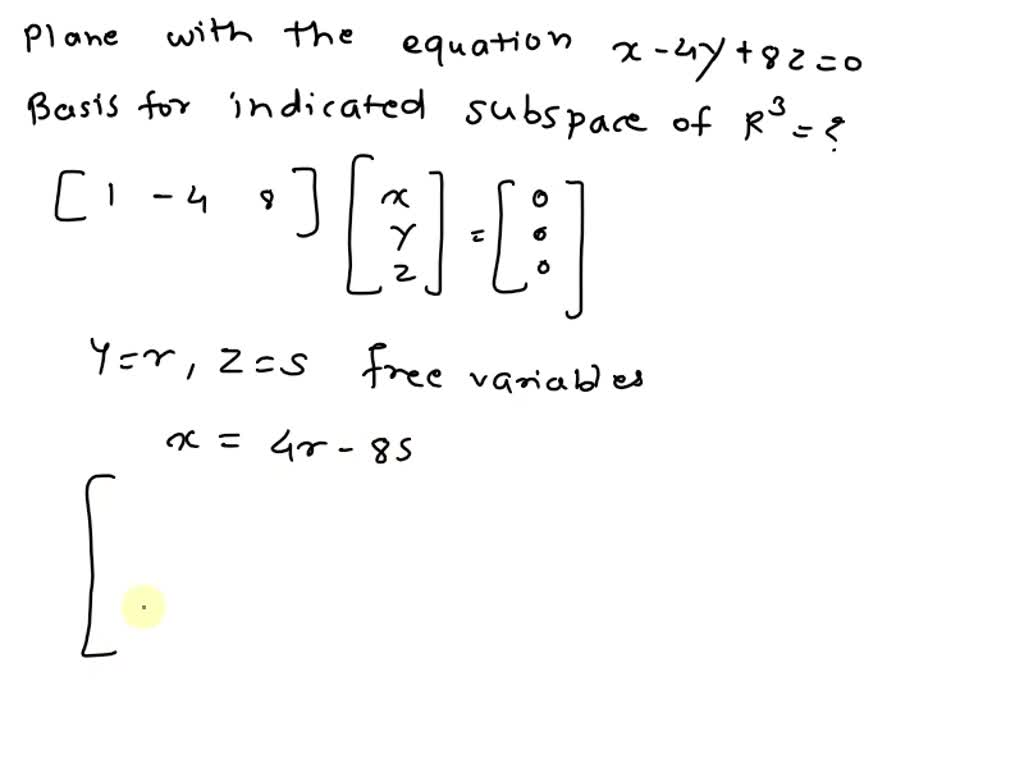 Plane with the equation x - 4y + 8z = 0
Basis for indicated subspace of R³ = ?
[ 1 - 4 8 ] [ x y z ] = [ 0 0 0 ]
Y = r, Z = s free variables
x = 4r - 8s
[